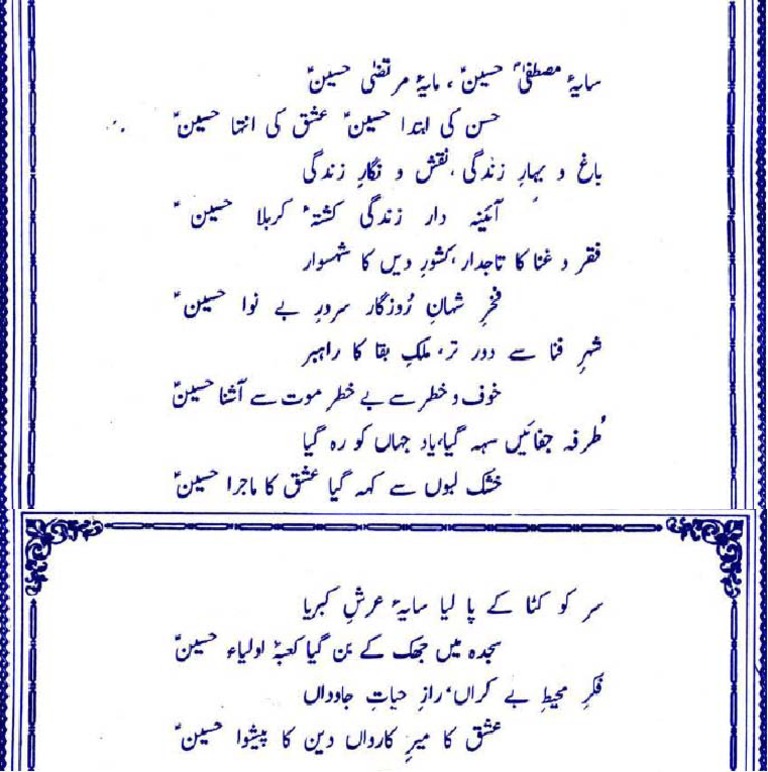 سایۂ مصطفیٰؐ حسینؑ ، مایۂ مرتضٰی حسینؑ
حسن کی ابتدا حسینؑ عشق کی انتہا حسینؑ
باغ و بہارِ زندگی ، نقش و نگارِ زندگی
آئینہ دار زندگی کشتۂ کربلا حسینؑ
فقر و غنا کا تاجدار ، کشورِ دیں کا شہسوار
فخرِ شہانِ رُوزگار سرورِ بے نوا حسینؑ
شہرِ فنا سے دور تر ، ملکِ بقا کا راہبر
خوف و خطر سے بے خطر موت سے آشنا حسینؑ
طُرفہ جفائیں سہہ گیا ، یاد جہاں کو رہ گیا
خشک لبوں سے کہہ گیا عشق کا ماجرا حسینؑ
سر کو کٹا کے پا لیا سایۂ عرشِ کبریا
سجدہ میں جھک کے بن گیا کعبۂ اولیاء حسینؑ
فکرِ محیطِ بے کراں ، رازِ حیاتِ جاوداں
عشق کا میرِ کارواں دین کا پیشوا حسینؑ